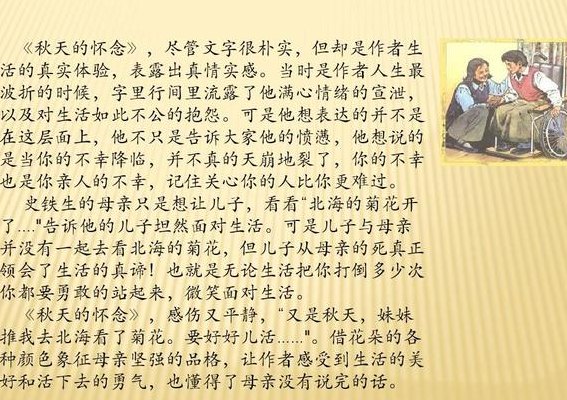 《秋天的怀念》，尽管文字很朴实，但却是作者生
活的真实体验，表露出真情实感。当时是作者人生最
波折的时候，字里行间里流露了他满心情绪的宣泄，
以及对生活如此不公的抱怨。可是他想表达的并不是
在这层面上，他不只是告诉大家他的愤懑，他想说的
是当你的不幸降临，并不真的天崩地裂了，你的不幸
也是你亲人的不幸，记住关心你的人比你更难过。
史铁生的母亲只是想让儿子，看看“北海的菊花开
了...."告诉他的儿子坦然面对生活。可是儿子与母亲
并没有一起去看北海的菊花，但儿子从母亲的死真正
领会了生活的真谛！也就是无论生活把你打倒多少次
你都要勇敢的站起来，微笑面对生活。
《秋天的怀念》，感伤又平静，“又是秋天，妹妹
推我去北海看了菊花。要好好儿活......"。借花朵的各
种颜色象征母亲坚强的品格，让作者感受到生活的美
好和活下去的勇气，也懂得了母亲没有说完的话。